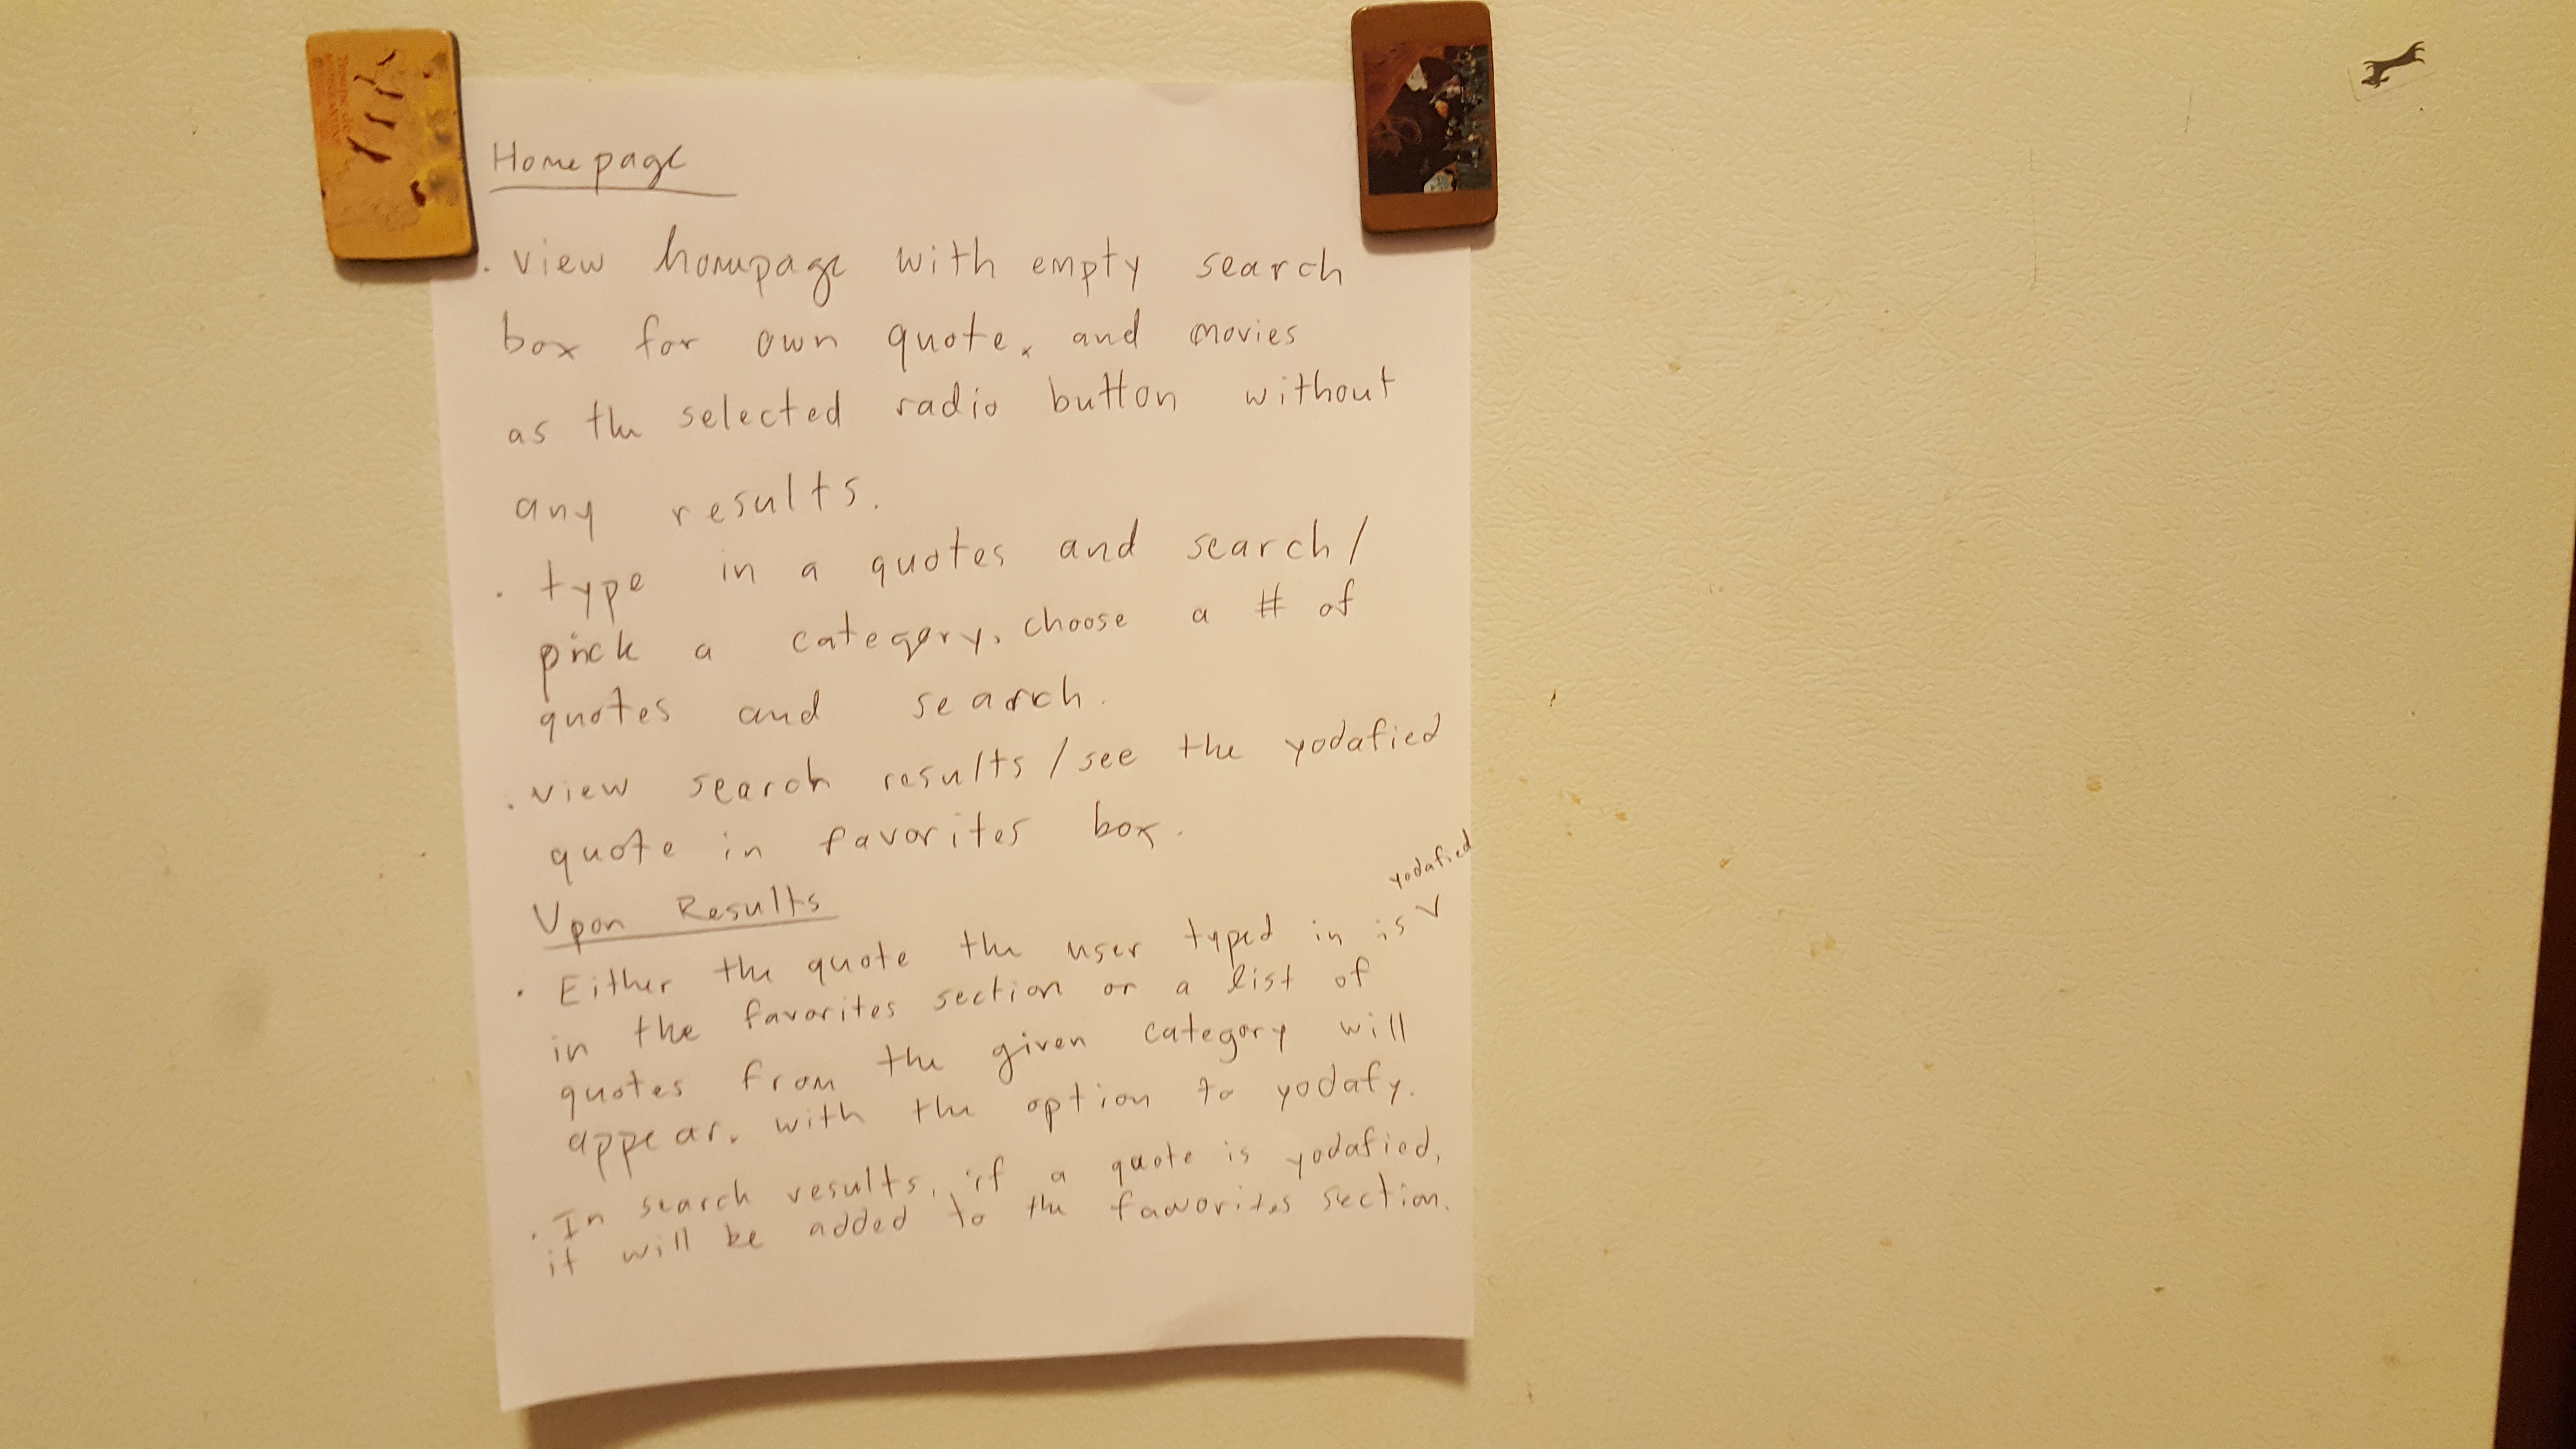 Homepage
. view homepage with empty search
box for own quote, and movies
as the selected radio button without
any results.
. type in a quotes and search/
pick a category, choose a # of
quotes and search.
. view search results/see the yodafied
quote in favorites box.
Upon Results
. Either the quote the user typed in is yodafied
in the favorites section or a list of
quotes from the given category will
appear, with the option to yodafy.
. In search results, if a quote is yodafied,
it will be added to the favorites section.